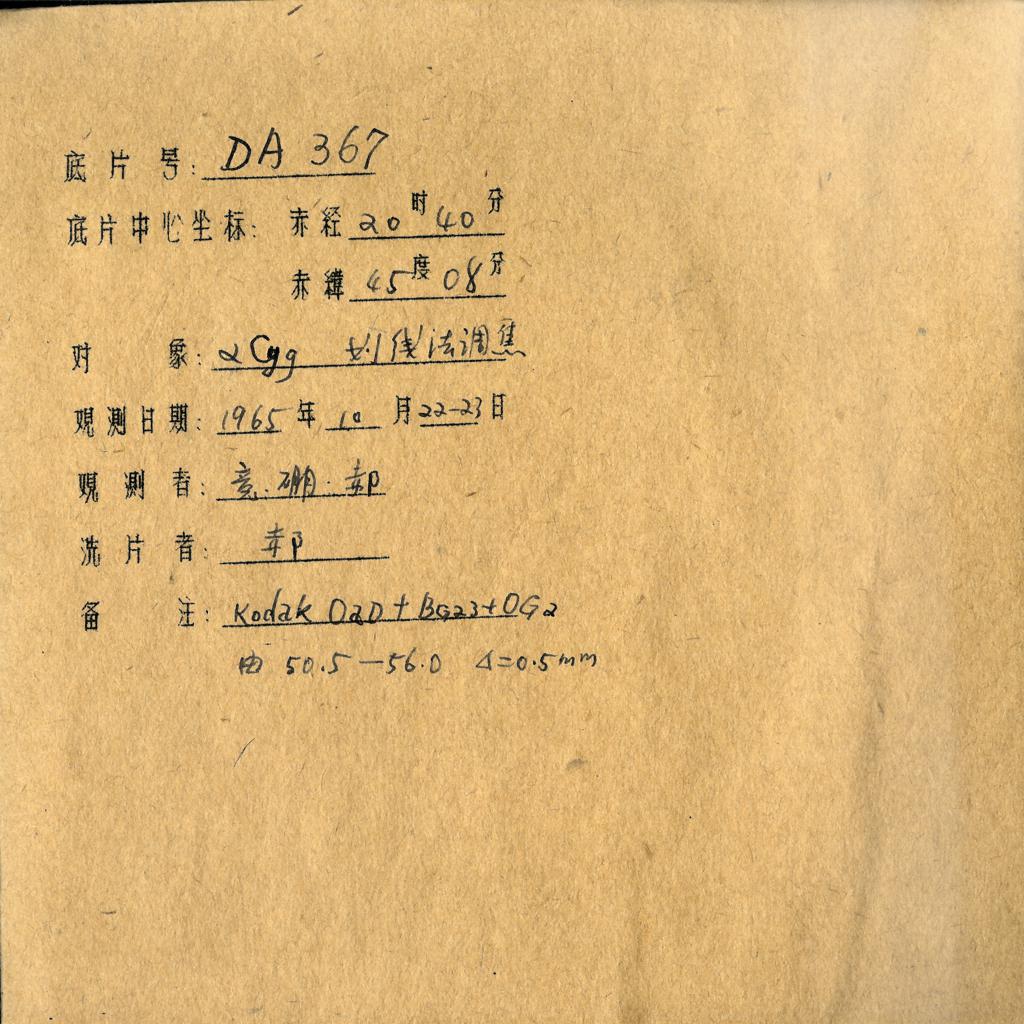 底片号: DA 367
底片中心坐标: 赤经 20时40分
赤纬 45度08分
对象: α Cyg 划线法调焦
观测日期: 1965年10月22-23日
观测者: 竞.硼.郝
洗片者: 郝
备注: Kodak OaD+BG23+OG2
由 50.5—56.0 Δ=0.5mm